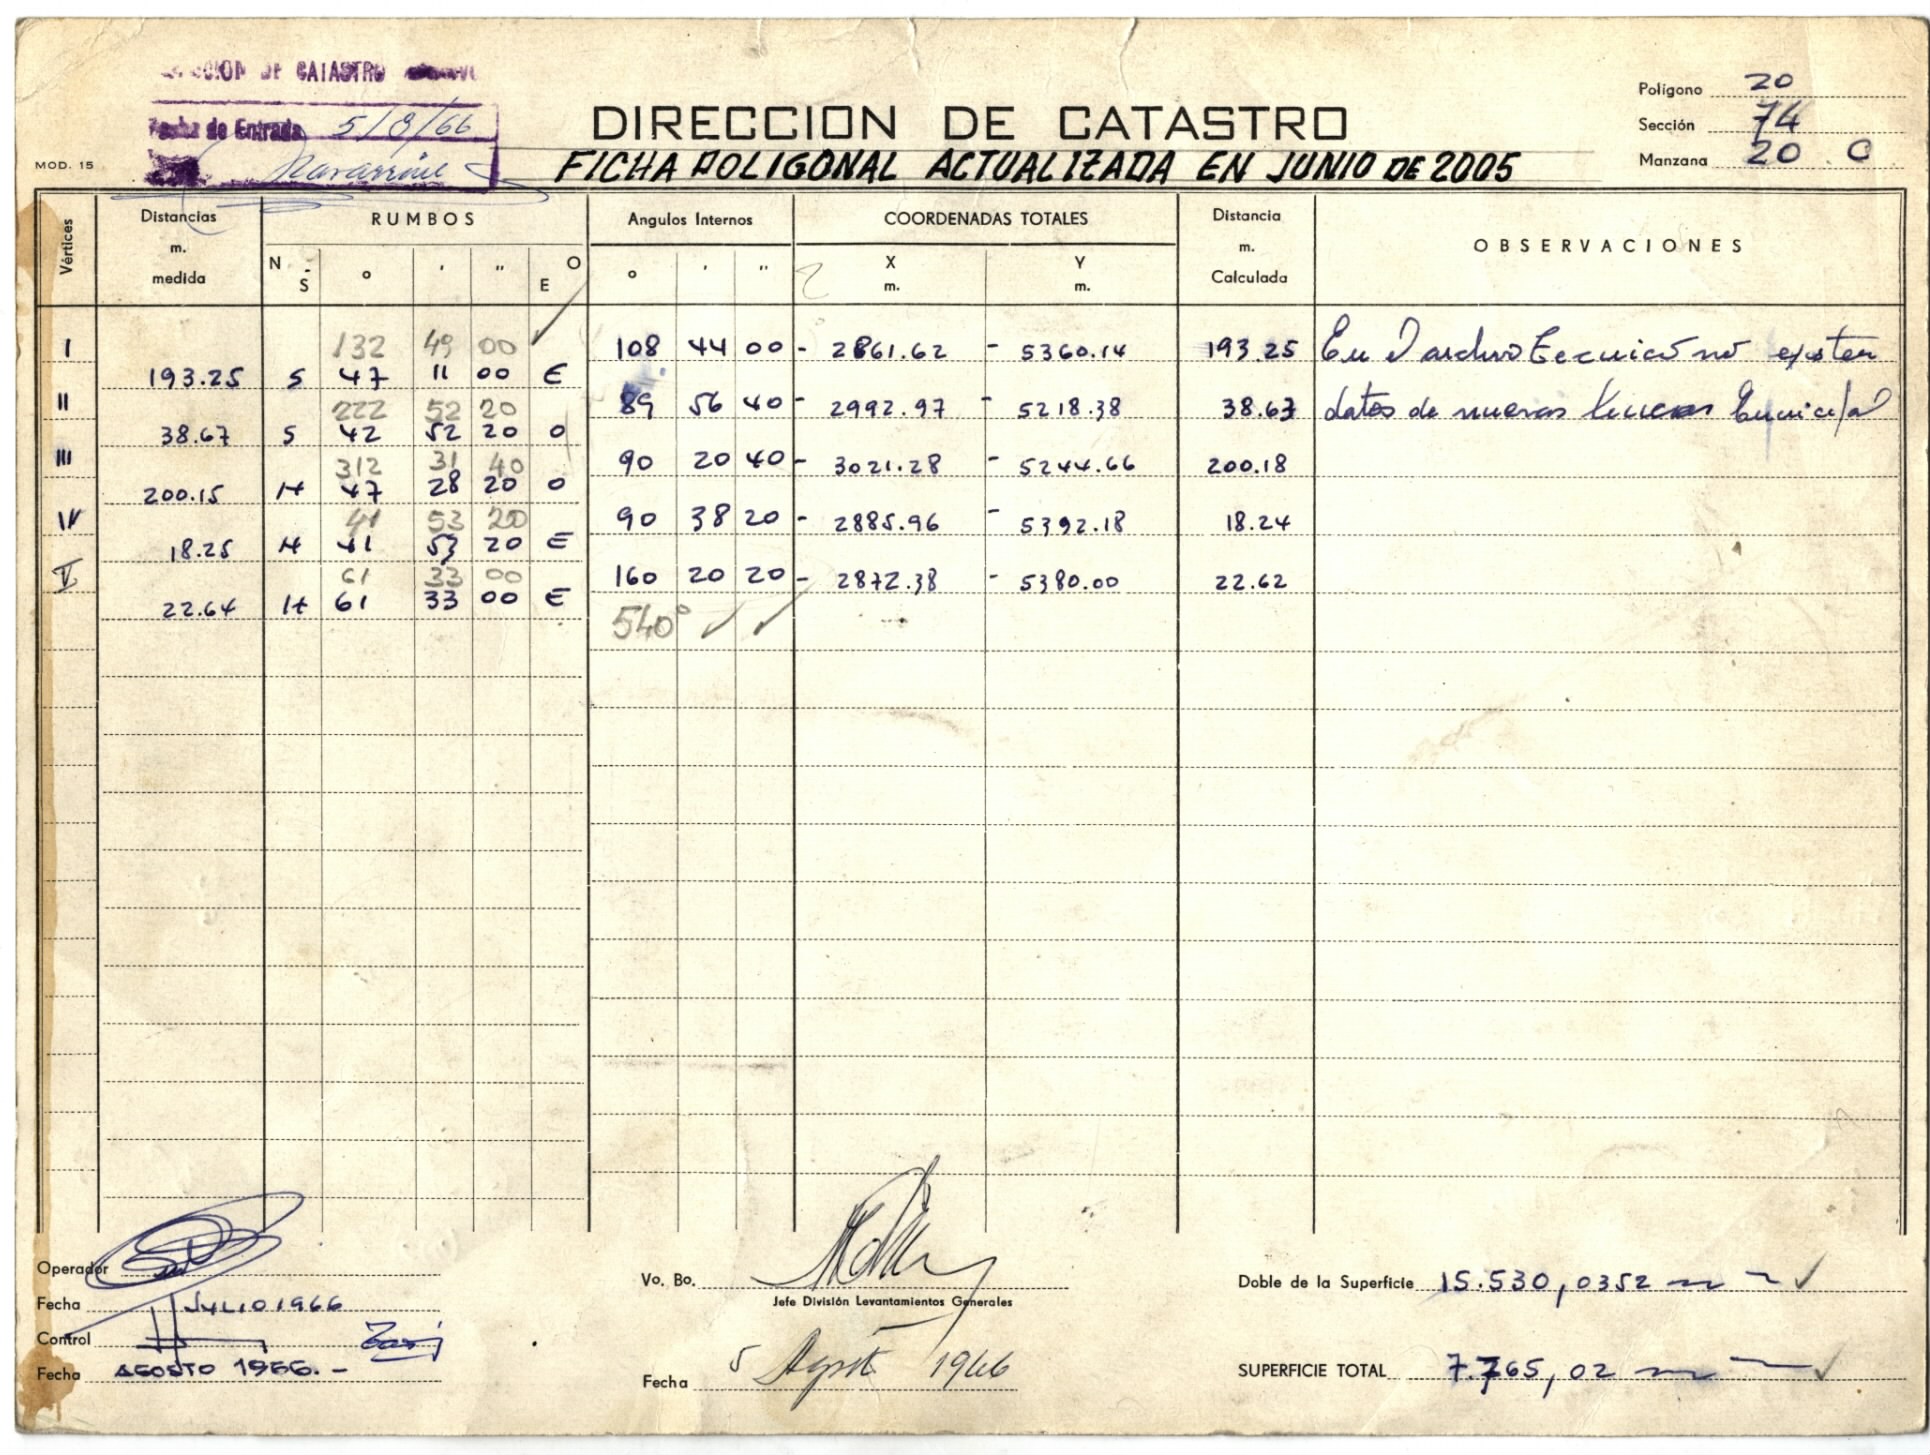 DE CATASTRO
de Entrada 5/8/66
MOD. 15
DIRECCION DE CATASTRO
FICHA POLIGONAL ACTUALIZADA EN JUNIO DE 2005
Polígono 20
Sección 74
Manzana 20 C
Vértices
Distancias m. medida
RUMBOS
N S ° ' " O E
Angulos Internos
° ' "
COORDENADAS TOTALES
X m. Y m.
Distancia m. Calculada
OBSERVACIONES
132 49 00
I 108 44 00 - 2861.62 - 5360.14 193.25 En archivo Tecnico no existen
193.25 S 47 11 00 E
222 52 20
II 89 56 40 - 2992.97 - 5218.38 38.67 datos de nuevas
38.67 S 42 52 20 O
312 31 40
III 90 20 40 - 3021.28 - 5244.66 200.18
200.15 N 47 28 20 O
41 53 20
IV 90 38 20 - 2885.96 - 5392.18 18.24
18.25 N 41 53 20 E
61 33 00
V 160 20 20 - 2872.38 - 5380.00 22.62
22.64 N 61 33 00 E
540°
Operador
Fecha JULIO 1966
Control
Fecha AGOSTO 1966.-
Vo. Bo.
Jefe División Levantamientos Generales
Fecha 5 Agosto 1966
Doble de la Superficie 15.530,0352
SUPERFICIE TOTAL 7.765,02